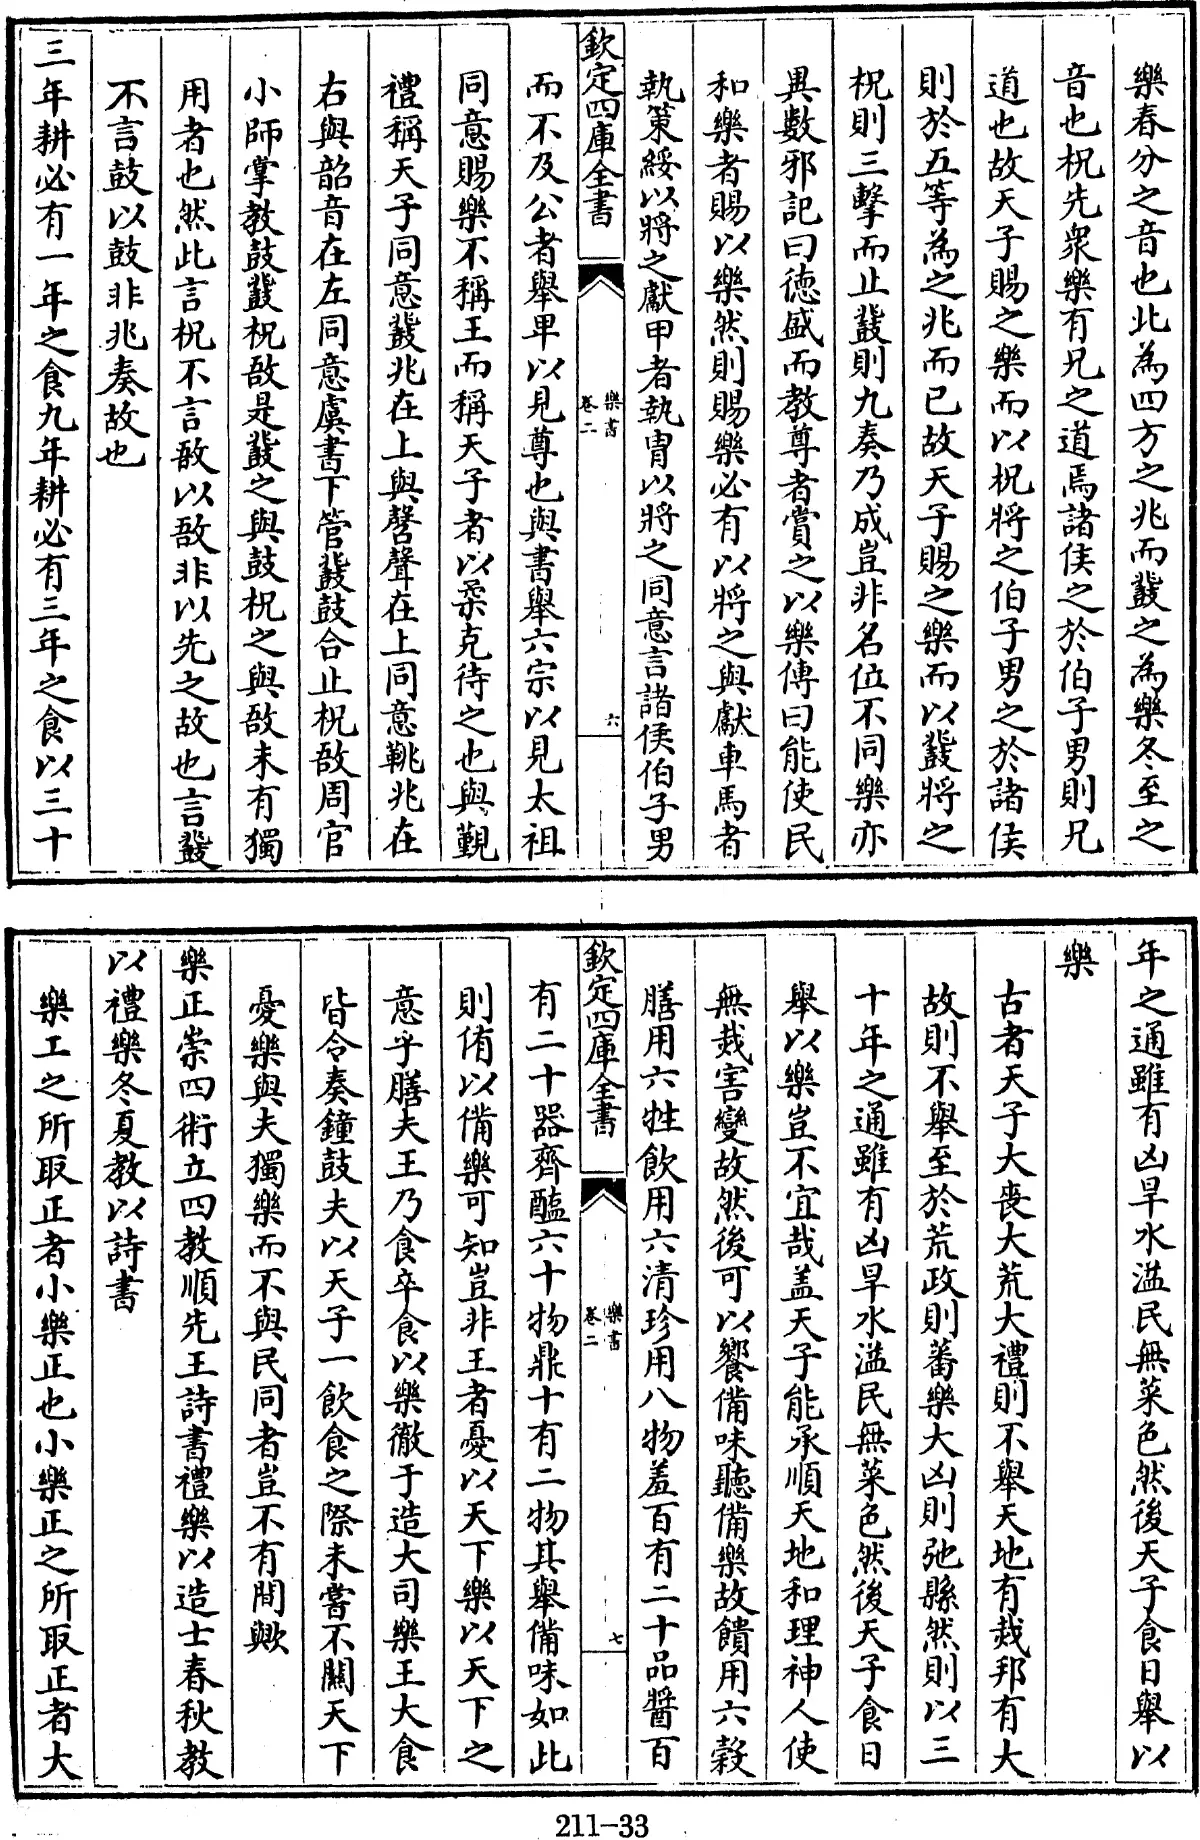 樂春分之音也此為四方之兆而鼗之為樂冬至之
音也柷先衆樂有兄之道焉諸侯之於伯子男則兄
道也故天子賜之樂而以柷將之伯子男之於諸侯
則於五等為之兆而已故天子賜之樂而以鼗將之
柷則三擊而止鼗則九奏乃成豈非名位不同樂亦
異數邪記曰徳盛而教尊者賞之以樂傳曰能使民
和樂者賜以樂然則賜樂必有以將之與獻車馬者
執策綏以將之獻甲者執胄以將之同意言諸侯伯子男
欽定四庫全書
樂書
卷二
六
而不及公者舉卑以見尊也與書舉六宗以見太祖
同意賜樂不稱王而稱天子者以柔克待之也與覲
禮稱天子同意鼗兆在上與磬聲在上同意鞉兆在
右與韶音在左同意虞書下管鼗鼓合止柷敔周官
小師掌教鼓鼗柷敔是鼗之與鼓柷之與敔未有獨
用者也然此言柷不言敔以敔非以先之故也言鼗
不言鼓以鼓非兆奏故也
三年耕必有一年之食九年耕必有三年之食以三十
年之通雖有凶旱水溢民無菜色然後天子食日舉以
樂
古者天子大喪大荒大禮則不舉天地有烖邦有大
故則不舉至於荒政則蕃樂大凶則弛縣然則以三
十年之通雖有凶旱水溢民無菜色然後天子食日
舉以樂豈不宜哉盖天子能承順天地和理神人使
無烖害變故然後可以饗備味聽備樂故饋用六榖
膳用六牲飲用六清珍用八物羞百有二十品醬百
欽定四庫全書
樂書
卷二
七
有二十器齊醢六十物鼎十有二物其舉備味如此
則侑以備樂可知豈非王者憂以天下樂以天下之
意乎膳夫王乃食卒食以樂徹于造大司樂王大食
皆令奏鐘鼓夫以天子一飲食之際未嘗不關天下
憂樂與夫獨樂而不與民同者豈不有間歟
樂正崇四術立四教順先王詩書禮樂以造士春秋教
以禮樂冬夏教以詩書
樂工之所取正者小樂正也小樂正之所取正者大
211-33